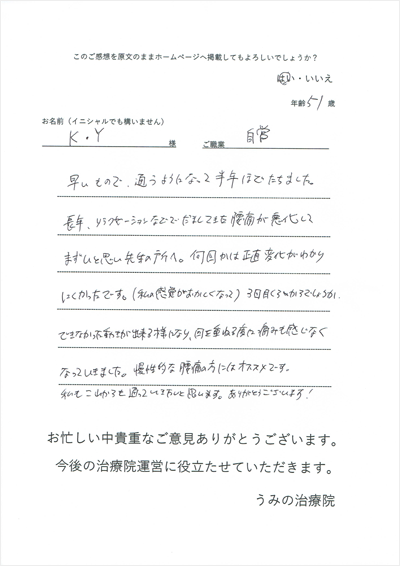 このご感想を原文のままホームページへ掲載してもよろしいでしょうか？
はい・いいえ
年齢 51 歳
お名前（イニシャルでも構いません）
K・Y 様 ご職業 自営
早いもので、通うようになって半年ほどたちました。
長年、リラクゼーションなどでだましてきた腰痛が悪化して
まずいと思い先生の所へ。何回かは正直変化がわかり
にくかったです。（私の感覚がおかしくなって）3回目くらいからでしょうか、
できなかった動きが出来る様になり、回を重ねる度に痛みも感じなく
なっていきました。慢性的な腰痛の方にはオススメです。
私もこれからも通っていきたいと思います。ありがとうございます！
お忙しい中貴重なご意見ありがとうございます。
今後の治療院運営に役立たせていただきます。
うみの治療院